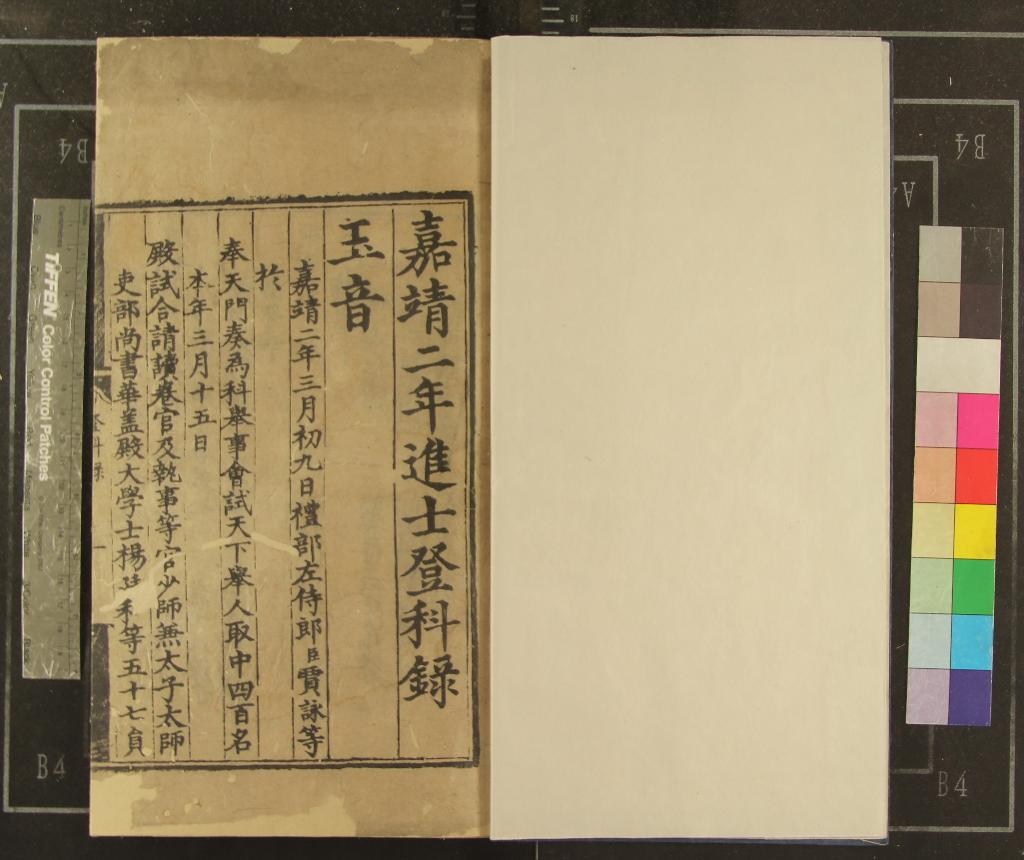 嘉靖二年進士登科錄
玉音
嘉靖二年三月初九日禮部左侍郎臣賈詠等
於
奉天門奏為科舉事會試天下舉人取中四百名
本年三月十五日
殿試合請讀卷官及執事等官少師兼太子太師
吏部尚書華蓋殿大學士楊廷和等五十七員
登科錄
一
TIFFEN Color Control Patches
B4
B4
B4
B4